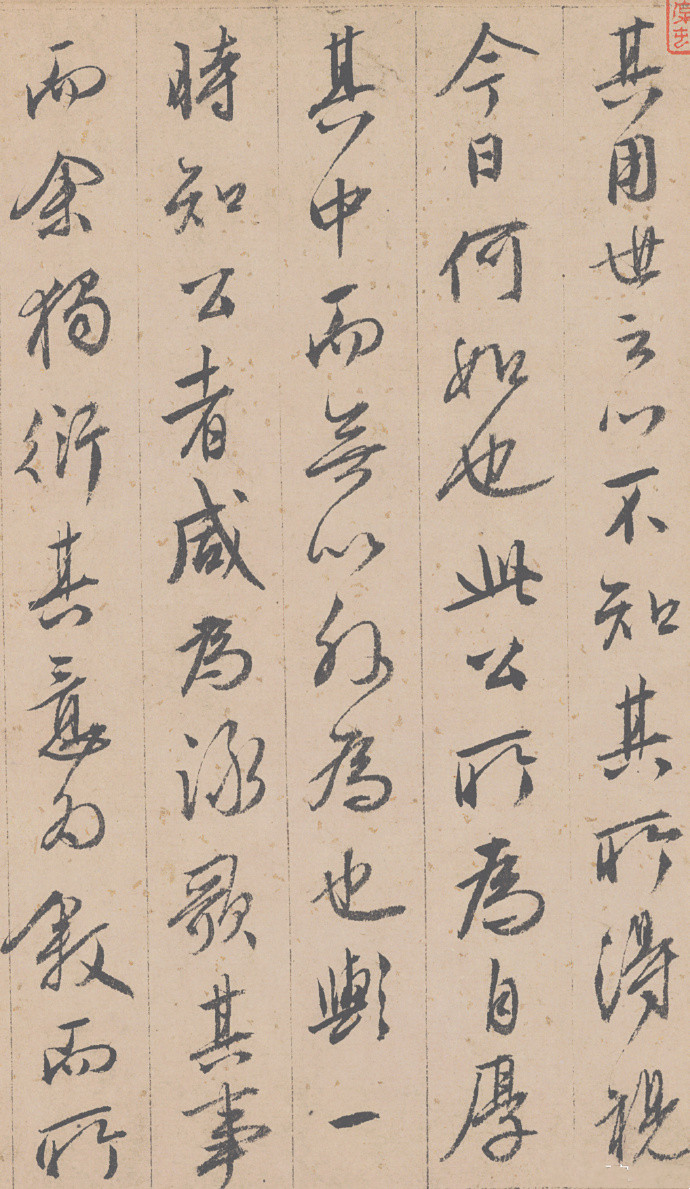 其用世之心不知其所得視
今日何如也此公所為自厚
其中而無以外為也與一
時知公者咸為詠歌其事
而余獨衍其意為敘而所